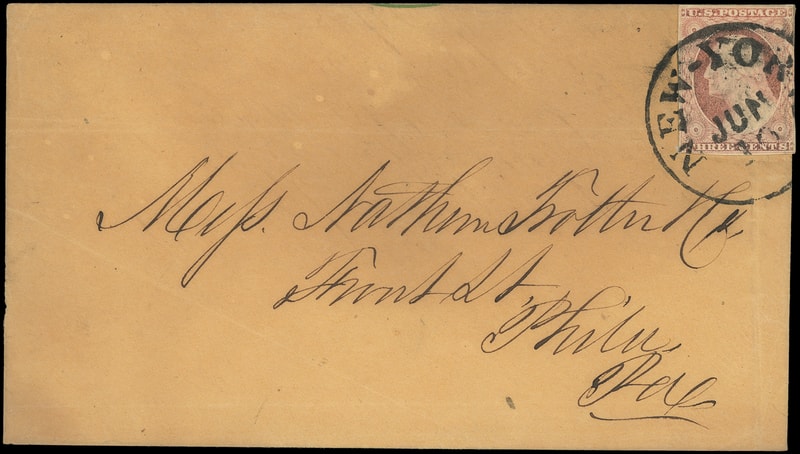 U.S. POSTAGE
THREE CENTS
NEW-YORK
JUN
10
Mess. Nathan Trotter & Co
Front St
Phila
Pa